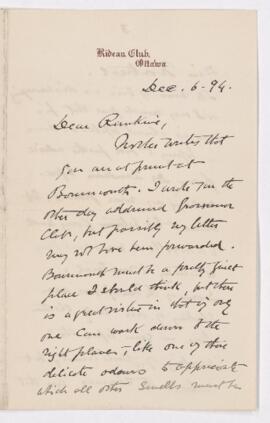 Rideau Club,
Ottawa
Dec. 6. 94.
Dear Rankine,
writes that
you are at present at
Bournemouth. I wrote you the
other day addressed Grosvenor
Club, but possibly my letter
may not have been forwarded.
Bournemouth must be a pretty quiet
place I should think, but there
is a great in it if only
one can work down to the
right plane, like one of those
delicate odours to appreciate
which all other smells must be